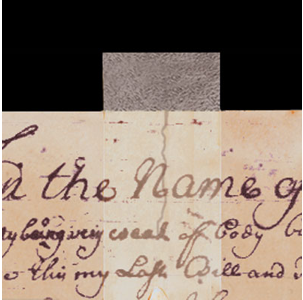 d the Name of
being very weak of Body
this my Last Will and